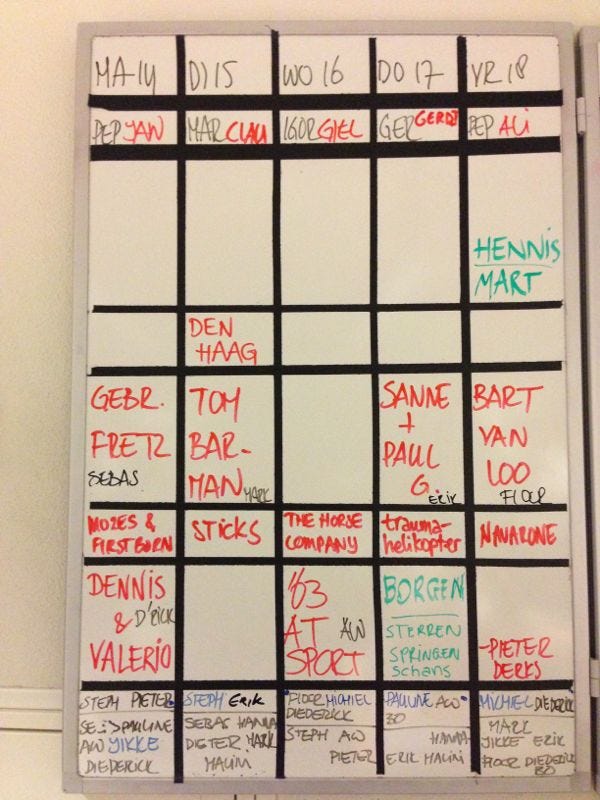 MA 14 DI 15 WO 16 DO 17 VR 18
PEP JAN MAR CLAU IGOR GIEL GER GERDJ PEP ALI
HENNIS
MART
DEN
HAAG
GEBR.
FRETZ
SEBAS
TOM
BAR-
MAN MARK
SANNE
+
PAUL
G. ERIK
BART
VAN
LOO
FLOOR
MOZES &
FIRSTBORN
STICKS
THE HORSE
COMPANY
trauma-
helikopter
NAVARONE
DENNIS
& D'RICK
VALERIO
'63
AT AW
SPORT
BORGEN
STERREN
SPRINGEN
schans
-PIETER
DERKS
STEPH PIETER
PAULINE
AW JIKKE
DIEDERICK
STEPH ERIK
SEBAS HANNA
DIETER MARK
MALIN
FLOOR MICHIEL
DIEDERICK
STEPH AW
PIETER
PAULINE AW
BO
HANNA
ERIK MALIN
MICHIEL DIEDERICK
MARK
JIKKE ERIK
FLOOR DIEDERICK
BO